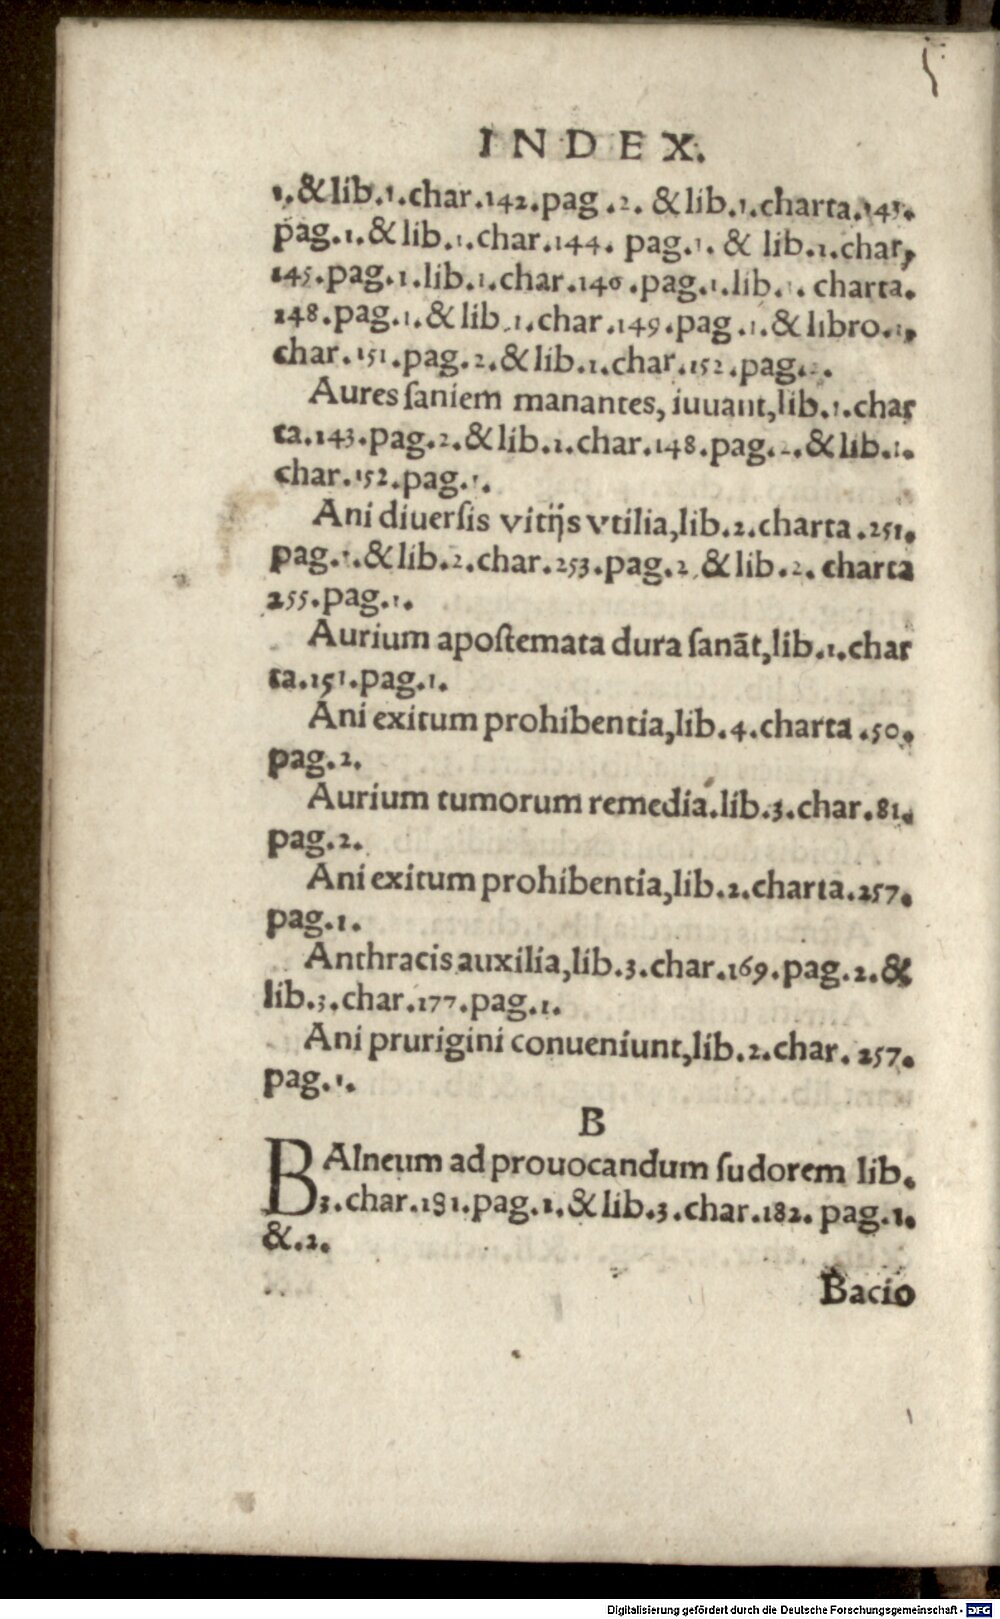 INDEX.
1.&lib.1.char.142.pag.2. &lib.1.charta.143.
pag.1.&lib.1.char.144. pag.1. & lib.1.char,
145.pag.1.lib.1.char.146.pag.1.lib.1. charta.
148.pag.1.&lib.1.char.149.pag.1.&libro.1,
char.151.pag.2.&lib.1.char.152.pag.
Aures ſaniem manantes, iuuant,lib.1.char
ta.143.pag.2.&lib.1.char.148.pag.2.&lib.1.
char.152.pag.1.
Ani diuerſis vitijs vtilia,lib.2.charta.251.
pag.1.&lib.2.char.253.pag.2.&lib.2. charta
255.pag.1.
Aurium apoſtemata dura ſanãt,lib.1.char
ta.151.pag.1.
Ani exitum prohibentia,lib.4.charta.50.
pag.2.
Aurium tumorum remedia.lib.3.char.81.
pag.2.
Ani exitum prohibentia,lib.2.charta.257.
pag.1.
Anthracis auxilia,lib.3.char.169.pag.2.&
lib.3.char.177.pag.1.
Ani prurigini conueniunt,lib.2.char. 257.
pag.1.
B
BAlneum ad prouocandum ſudorem lib.
3.char.181.pag.1.&lib.3.char.182. pag.1.
&.2.
Bacio
Digitalisierung gefördert durch die Deutsche Forschungsgemeinschaft - DFG